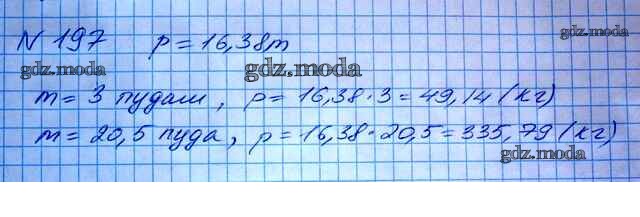 N 197 p = 16,38m
gdz.moda gdz.moda gdz.moda
m = 3 пудам, p = 16,38·3 = 49,14 (кг)
m = 20,5 пуда, p = 16,38·20,5 = 335,79 (кг)
gdz.moda gdz.moda